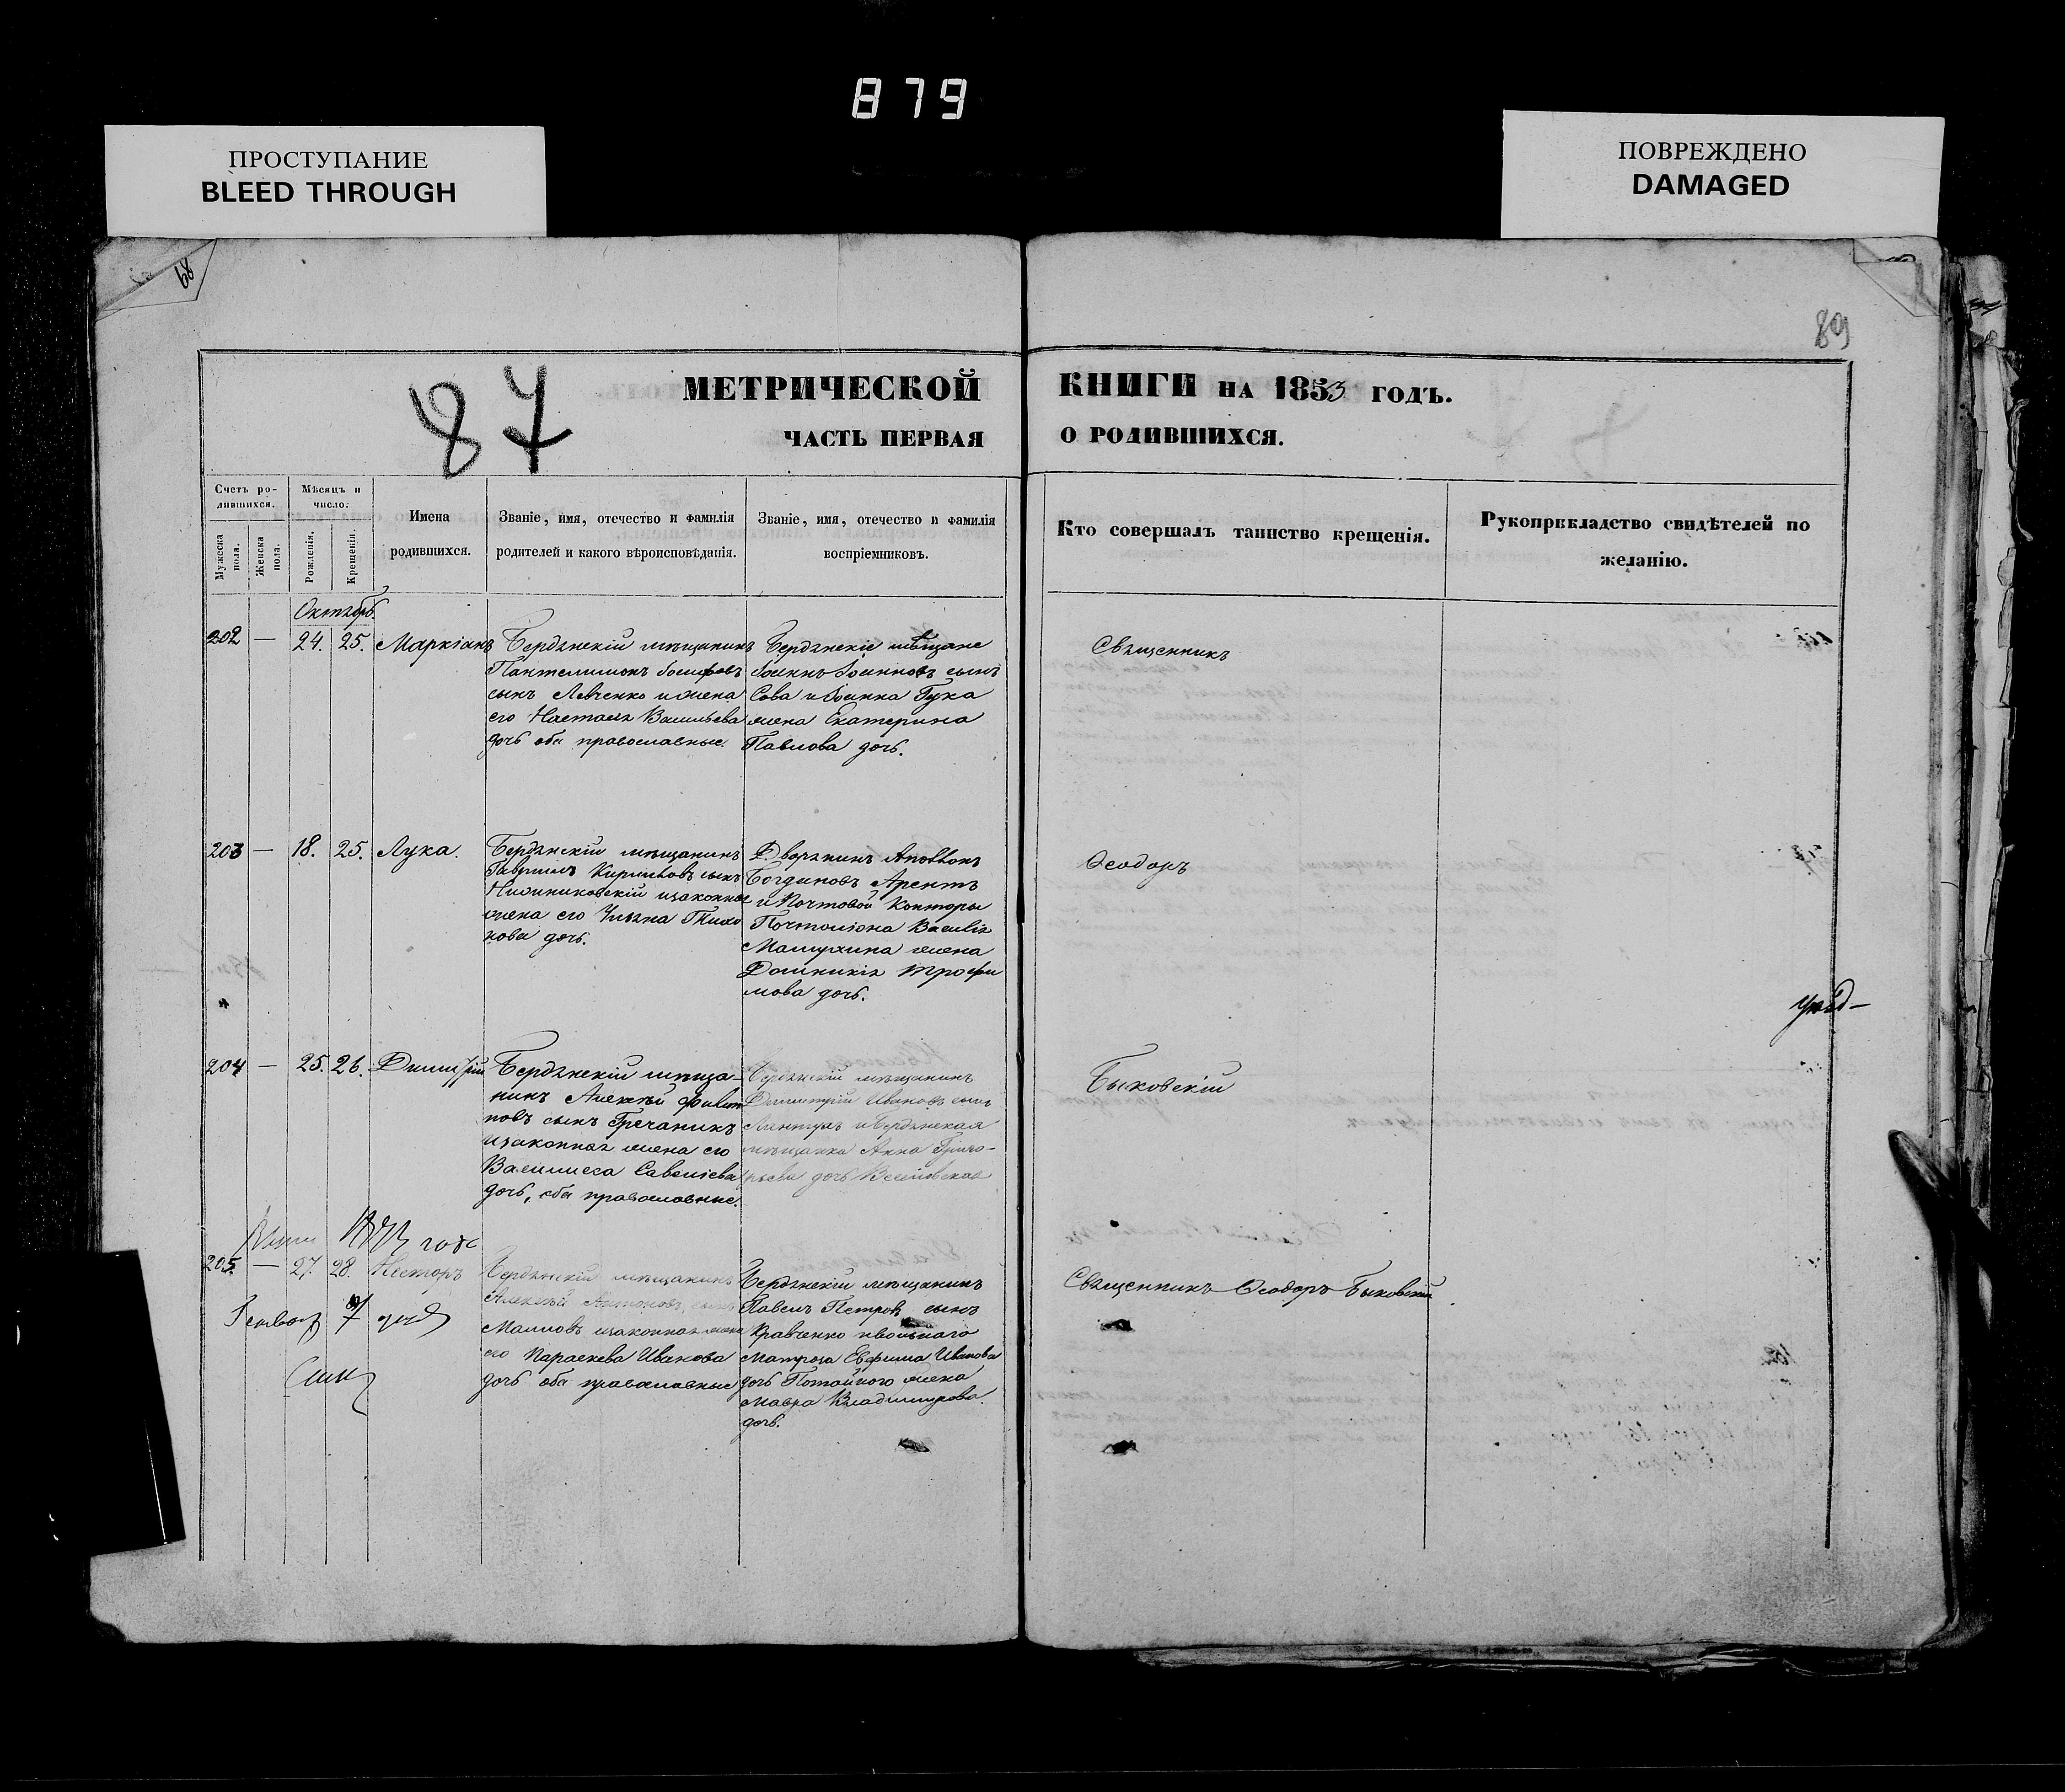 879
ПРОСТУПАНИЕ
BLEED THROUGH
ПОВРЕЖДЕНО
DAMAGED
68
89
87
МЕТРИЧЕСКОЙ
ЧАСТЬ ПЕРВАЯ
КНИГИ НА 1853 ГОДЪ.
О РОДИВШИХСЯ.
Счетъ ро-
дившихся.
Мужеска пола.
Женска пола.
Мѣсяцъ и
число:
Рожденія.
Крещенія.
Имена
родившихся.
Званіе, имя, отечество и фамилія
родителей и какого вѣроисповѣданія.
Званіе, имя, отечество и фамилія
воспріемниковъ.
Кто совершалъ таинство крещенія.
Рукоприкладство свидѣтелей по
желанію.
Октябрь
202 — 24. 25. Маркіанъ
Бердянскій мѣщанинъ
Пантелимонъ Іосифовъ
сынъ Левченко и жена
его Настасія Васильева
дочь оба православные.
Бердянскіе мѣщане
Іоаннъ Іоанновъ сынъ
Сова и Іоанна Гука
жена Екатерина
Павлова дочь.
Священникъ
203 — 18. 25. Лука.
Бердянскій мѣщанинъ
Гавріилъ Кириловъ сынъ
изаконная
жена его Ульяна Тихо
нова дочь.
Дворянинъ Аполлонъ
Богдановъ Арентъ
и Почтовой Конторы
Почтоліона Василія
жена
Домникія Трофи
мова дочь.
Ѳеодоръ
204 — 25. 26. Димитрій
Бердянскій мѣща-
нинъ Алексѣй Филип
повъ сынъ Гречаникъ
изаконная жена его
Василиса Савеліева
дочь, оба православные.
Бердянскій мѣщанинъ
Димитрій Ивановъ сынъ
и Бердянская
мѣщанка Анна Григо-
рьева дочь
Быковскій
года
205. — 27. 28. Несторъ
Бердянскій мѣщанинъ
Алексѣй Антоновъ сынъ
Малиовъ изаконная жена
его Параскева Иванова
дочь оба православные
Бердянскій мѣщанинъ
Павелъ Петровъ сынъ
Кравченко
матроза Евфима Иванова
жена
Мавра Владимирова
дочь.
Священникъ Ѳеодоръ Быковскій